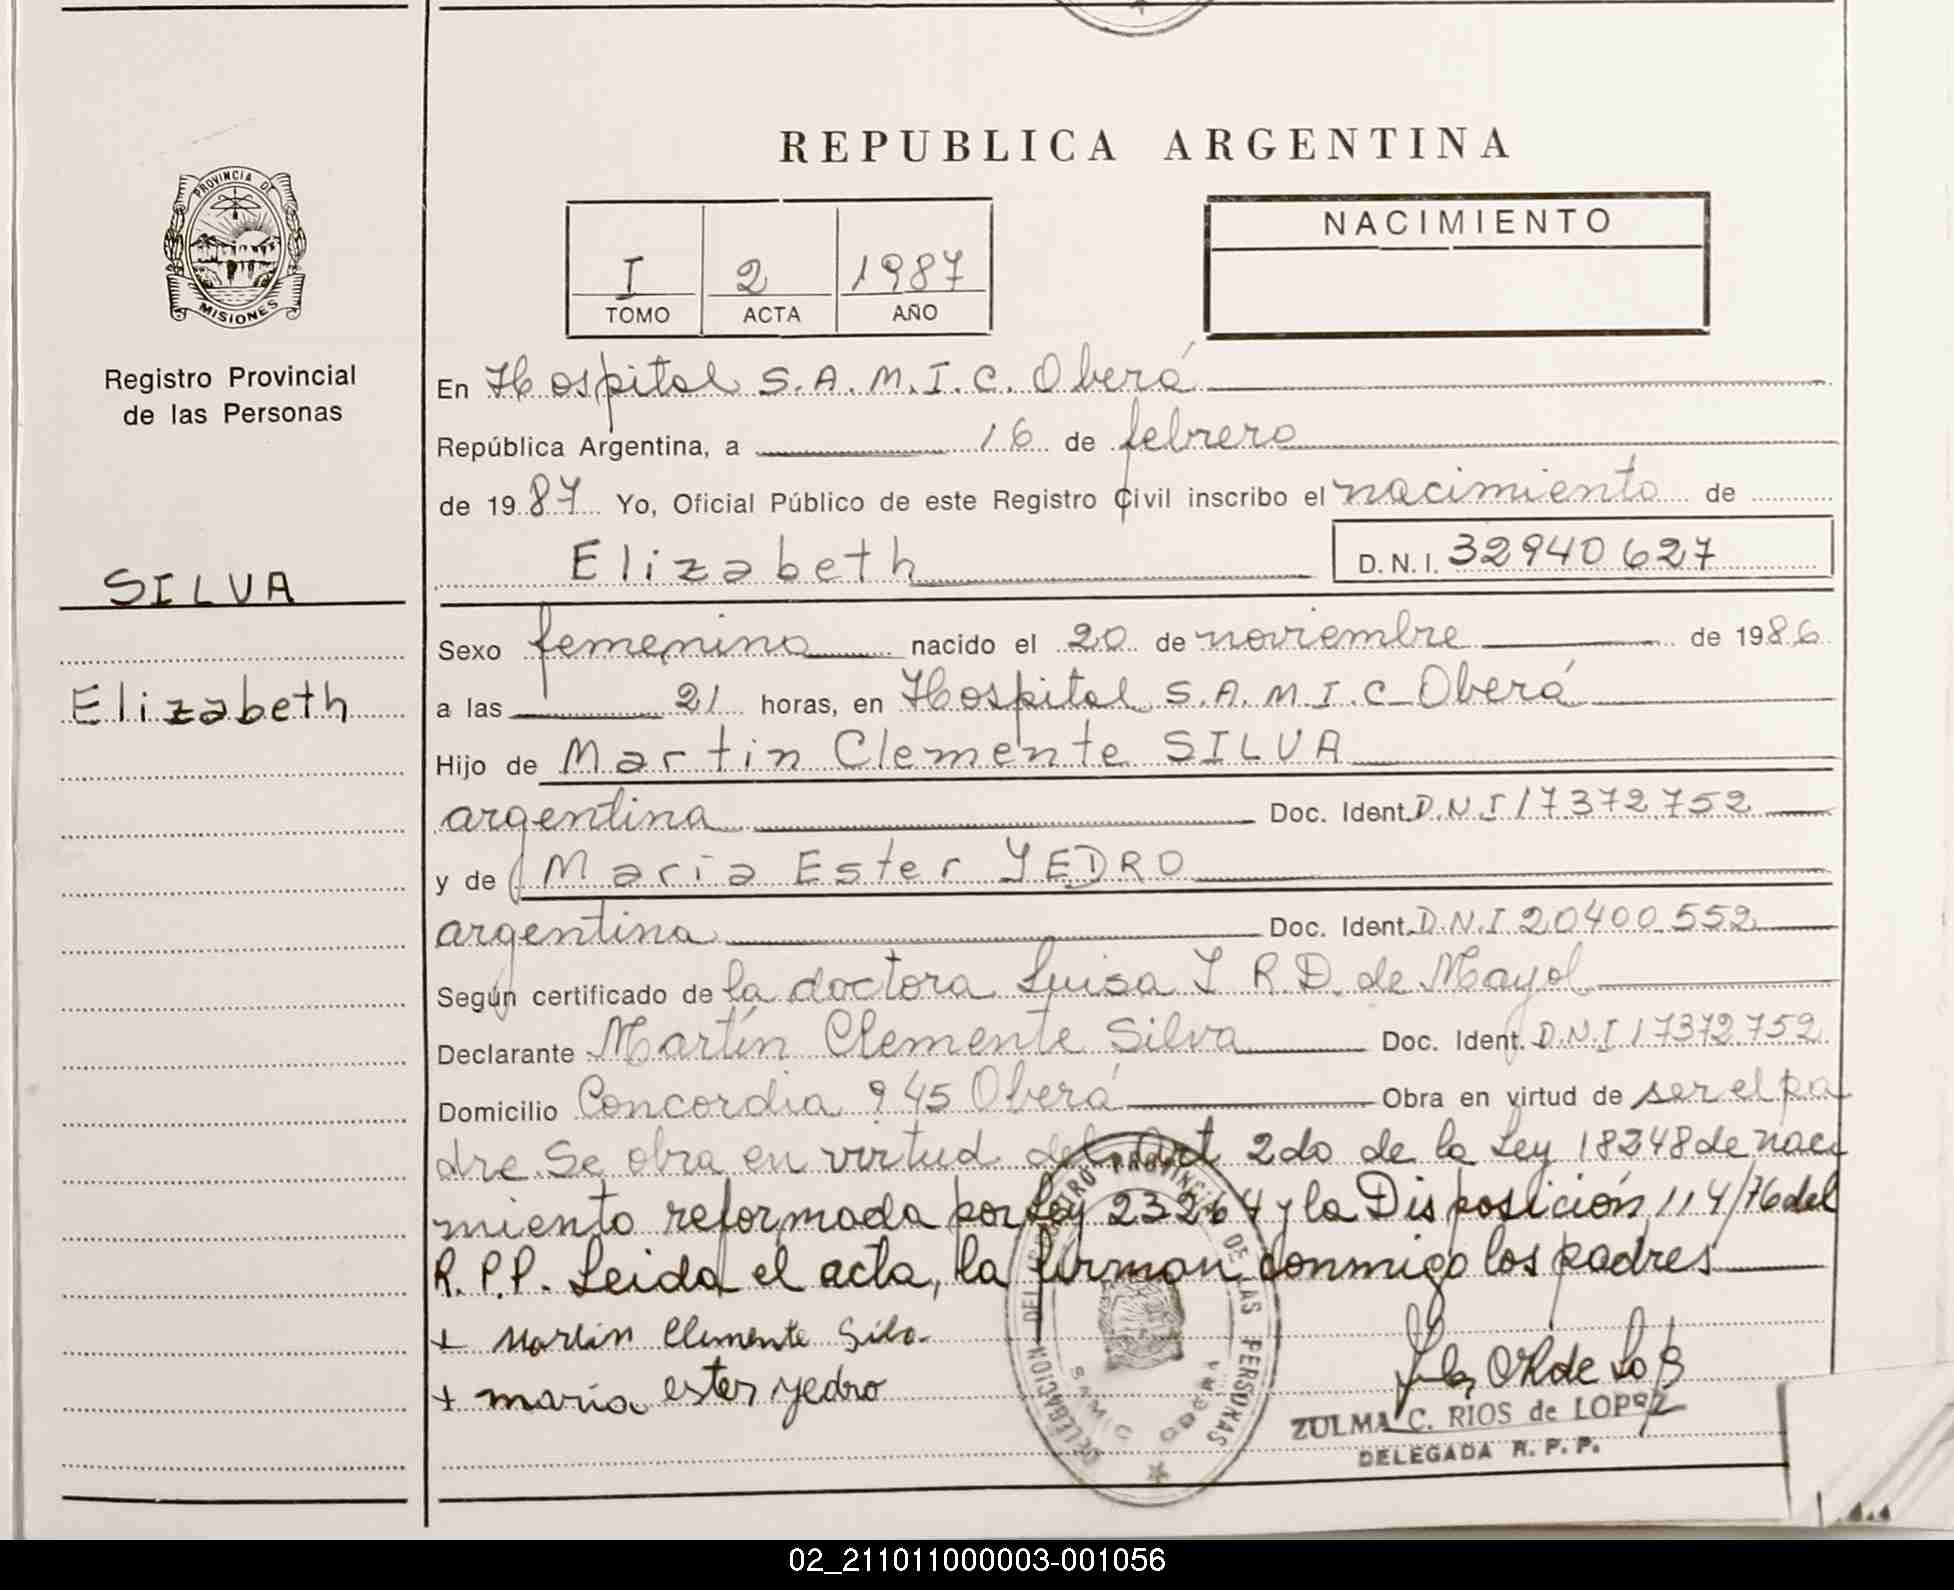 REPUBLICA ARGENTINA
PROVINCIA DE
MISIONES
Registro Provincial
de las Personas
I 2 1987
TOMO ACTA AÑO
NACIMIENTO
En Hospital S.A.M.I.C. Oberá
República Argentina, a 16 de febrero
de 1987 Yo, Oficial Público de este Registro Civil inscribo el nacimiento de
Elizabeth D.N.I. 32940627
SILVA
Elizabeth
Sexo femenino nacido el 20 de noviembre de 1986
a las 21 horas, en Hospital S.A.M.I.C Oberá
Hijo de Martin Clemente SILVA
argentina Doc. Ident. D.N.I 17372752
y de María Ester YEDRO
argentina Doc. Ident. D.N.I 20400552
Según certificado de la doctora Luisa I R.D. de Mayol
Declarante Martín Clemente Silva Doc. Ident. D.N.I 17372752
Domicilio Concordia 945 Oberá Obra en virtud de ser el pa
dre. Se obra en virtud del Art 2do de la Ley 18248 de naci
miento reformada por Ley 23264 y la Disposición 114/76 del
R.P.P. Leida el acta, la firman conmigo los padres
+ Martin Clemente Silva
+ maría ester yedro
DELEGACION DEL REGISTRO PROVINCIAL DE LAS PERSONAS
SAMIC OBERA
ZULMA C. RIOS de LOPEZ
DELEGADA R. P. P.
02_211011000003-001056